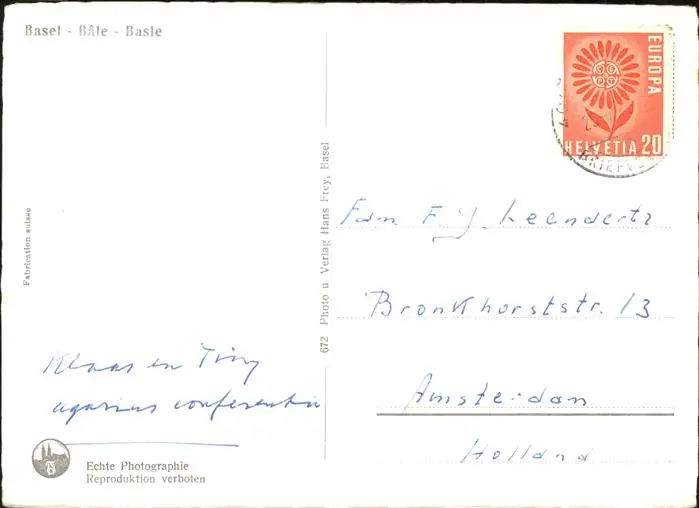 Basel - Bâle - Basle
EUROPA
CEPT
HELVETIA 20
BRIEFV
Fabrication suisse
672 Photo u Verlag Hans Frey, Basel
Fam. F. Leendertz
Bronkhorststr. 13
Amsterdam
Holland
Klaas en Tiny
conferentie
Echte Photographie
Reproduktion verboten